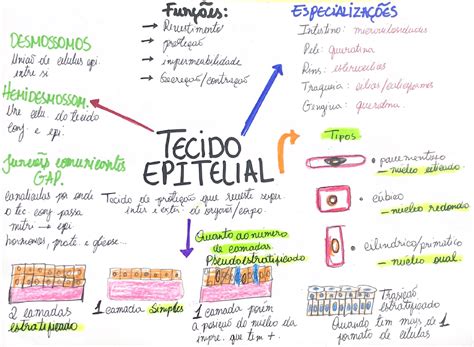 Funções:
→ Revestimento
→ proteção
→ impermeabilidade
→ Secreção/contração
ESPECIALIZAÇÕES
Intestino: microvilosidades
Pele: queratina
Rins: estereocílios
Traqueia: cílios/
Gengiva: queratina.
DESMOSSOMOS
União de células epi.
entre si
HEMIDESMOSSOM.
Une célu. do tecido
conj. e epi.
Junções comunicantes
GAP.
canalículos por onde
o tec. conj passa
nutri → epi
hormônios, prote. e glicose...
TECIDO
EPITELIAL
Tecido de proteção que reveste super.
inter. e exter. de órgãos/corpo.
Tipos
• pavimentoso
- núcleo
• cúbico
- núcleo redondo
• cilíndrico/prismático
- núcleo oval
Quanto ao número
de camadas
Pseudoestratificado
2 camadas
estratificado
1 camada Simples
1 camada porém
a posição do núcleo da
impre. que tem +.
Transição
estratificado
Quando tem mais de 1
formato de células